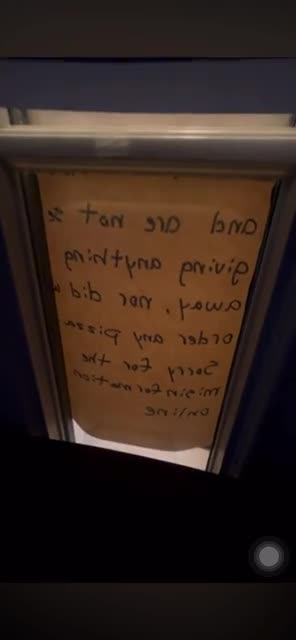 and are not
giving anything
away, nor did
order any pizza
Sorry for the
misinformation
online